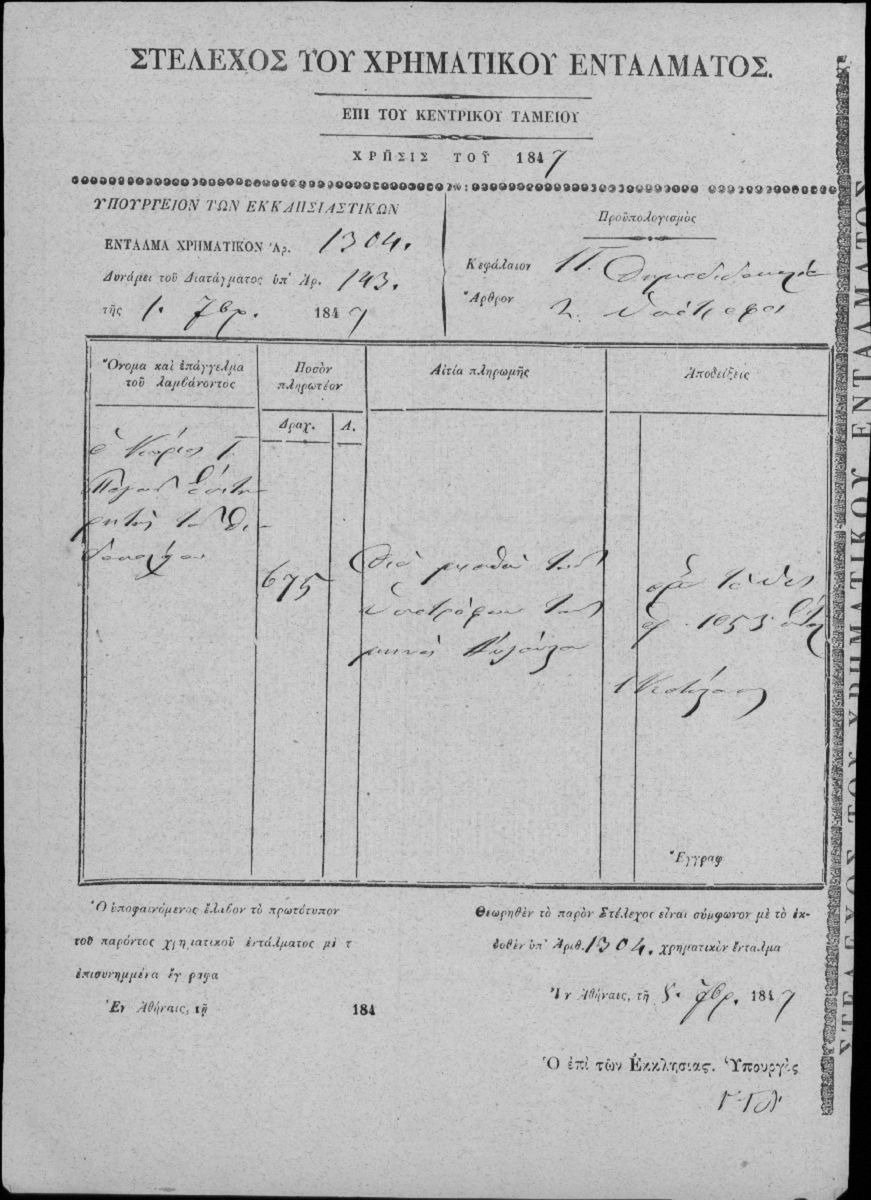 ΣΤΕΛΕΧΟΣ ΤΟΥ ΧΡΗΜΑΤΙΚΟΥ ΕΝΤΑΛΜΑΤΟΣ.
ΕΠΙ ΤΟΥ ΚΕΝΤΡΙΚΟΥ ΤΑΜΕΙΟΥ
ΧΡΗΣΙΣ ΤΟΥ 1847
ΥΠΟΥΡΓΕΙΟΝ ΤΩΝ ΕΚΚΛΗΣΙΑΣΤΙΚΩΝ
ΕΝΤΑΛΜΑ ΧΡΗΜΑΤΙΚΟΝ Ἀρ. 1304.
Δυνάμει τοῦ Διατάγματος ὑπ' Ἀρ. 143.
τῆς 1. 7βρ. 1847
Προϋπολογισμὸς
Κεφάλαιον
Ἄρθρον 2. Ὑπότροφοι
Ὄνομα καὶ ἐπάγγελμα
τοῦ λαμβάνοντος
Ποσὸν
πληρωτέον
Αἰτία πληρωμῆς
Ἀποδείξεις
Δραχ.
Λ.
ὁ Κύριος Γ.
675
Διὰ μισθοὺς τῶν
ὑποτρόφων τοῦ
μηνὸς Αὐγούστου
1053
Ἔγγραφ
Ὁ ὑποφαινόμενος ἔλαβον τὸ πρωτότυπον
τοῦ παρόντος χρηματικοῦ ἐντάλματος μὲ τ
ἐπισυνημμένα ἔγγραφα
Ἐν Ἀθήναις, τῇ 184
Θεωρηθὲν τὸ παρὸν Στέλεχος εἶναι σύμφωνον μὲ τὸ ἐκ-
δοθὲν ὑπ' Ἀριθ. 1304. χρηματικὸν ἔνταλμα
Ἐν Ἀθήναις, τῇ 7βρ. 1847
Ὁ ἐπὶ τῶν Ἐκκλησιας. Ὑπουργὸς
ΣΤΕΛΕΧΟΣ ΤΟΥ ΧΡΗΜΑΤΙΚΟΥ ΕΝΤΑΛΜΑΤΟΣ